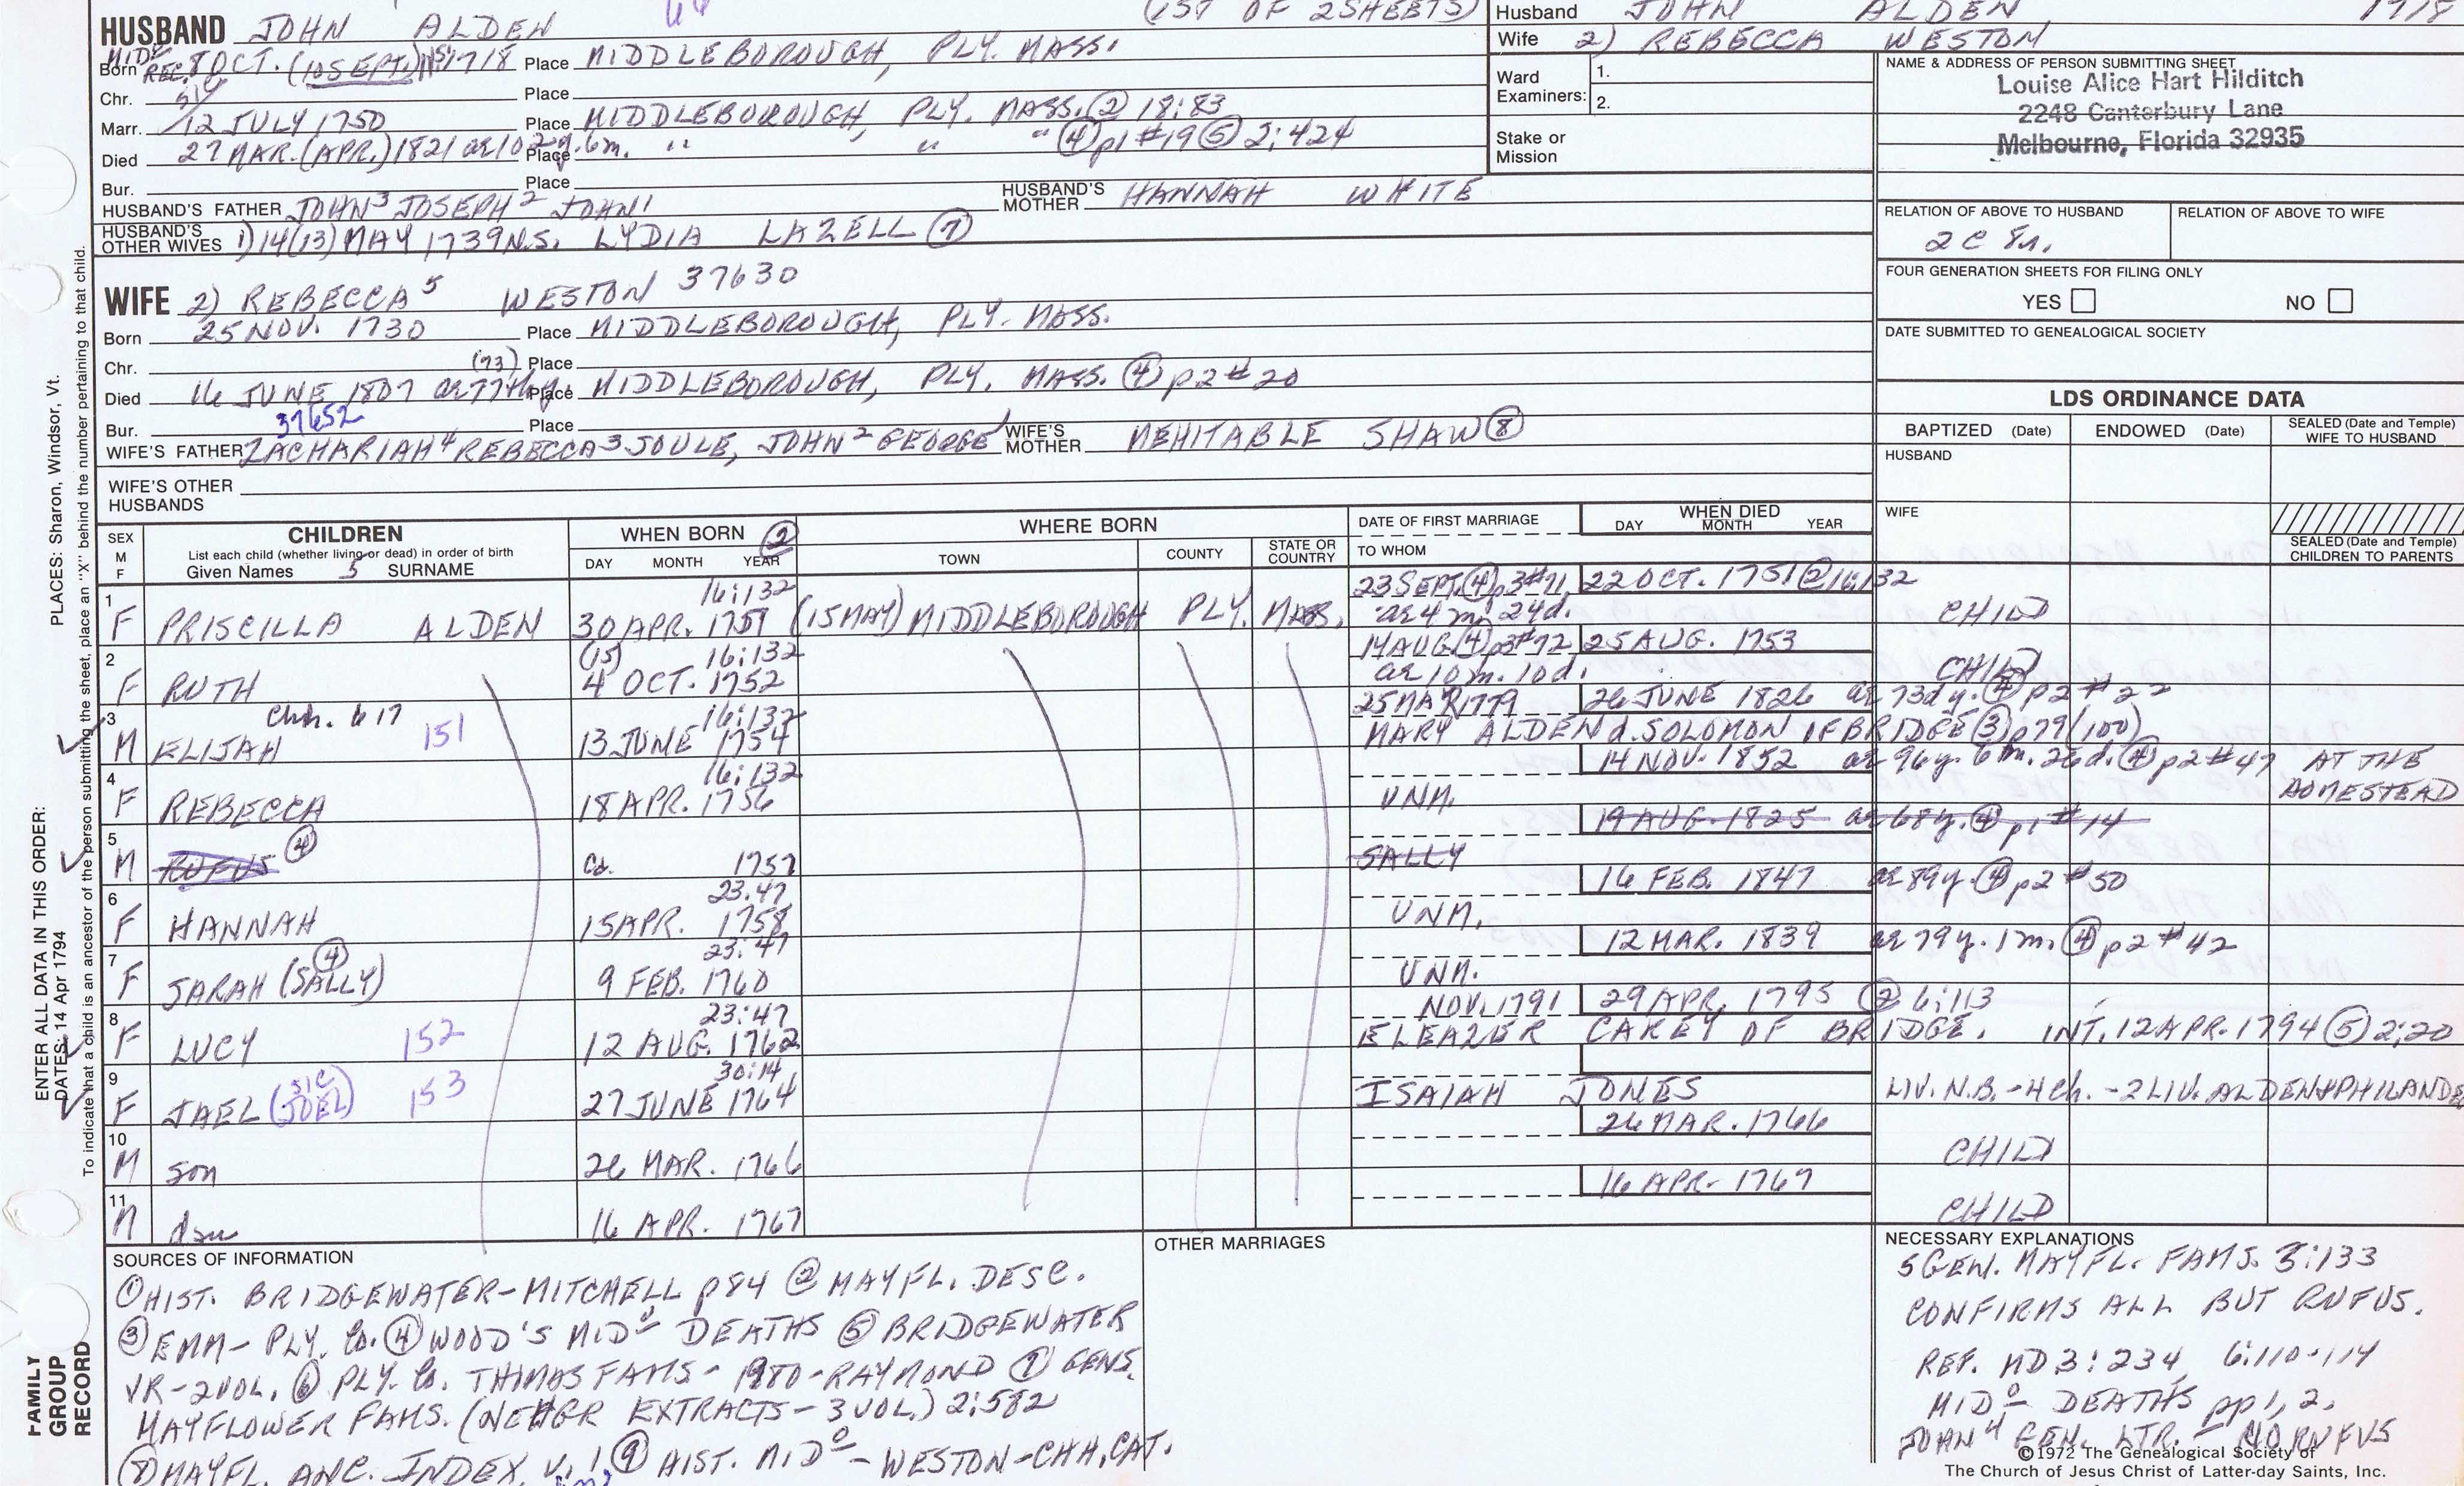 (1ST OF 2 SHEETS)
HUSBAND JOHN ALDEN
Husband JOHN ALDEN 1718
Wife 2) REBECCA WESTON
Born MIDo REC. 8 OCT. (10 SEPT.) 1718 Place MIDDLEBOROUGH, PLY. MASS.
Chr. Place
Marr. 12 JULY 1750 Place MIDDLEBOROUGH, PLY. MASS. ② 18:83
Died 27 MAR. (APR.) 1821 ae 102 y. 6m. Place " " " ④ p1 #19 ⑤ 2:424
Bur. Place
HUSBAND'S FATHER JOHN³ JOSEPH² JOHN¹ HUSBAND'S MOTHER HANNAH WHITE
HUSBAND'S OTHER WIVES 1) 14(13) MAY 1739 N.S. LYDIA LAZELL ⑦
Ward Examiners: 1.
2.
Stake or Mission
NAME & ADDRESS OF PERSON SUBMITTING SHEET
Louise Alice Hart Hilditch
2248 Canterbury Lane
Melbourne, Florida 32935
RELATION OF ABOVE TO HUSBAND RELATION OF ABOVE TO WIFE
2C 8r.
FOUR GENERATION SHEETS FOR FILING ONLY
YES NO
DATE SUBMITTED TO GENEALOGICAL SOCIETY
WIFE 2) REBECCA⁵ WESTON 37630
Born 25 NOV. 1730 Place MIDDLEBOROUGH, PLY. MASS.
Chr. (73) Place
Died 16 JUNE 1807 ae 77th y Place MIDDLEBOROUGH, PLY. MASS. ④ p2 #20
Bur. 37652 Place
WIFE'S FATHER ZACHARIAH⁴ REBECCA³ SOULE, JOHN² GEORGE¹ WIFE'S MOTHER MEHITABLE SHAW ⑧
WIFE'S OTHER HUSBANDS
LDS ORDINANCE DATA
BAPTIZED (Date) ENDOWED (Date) SEALED (Date and Temple) WIFE TO HUSBAND
HUSBAND
WIFE
SEALED (Date and Temple) CHILDREN TO PARENTS
SEX M F
CHILDREN
List each child (whether living or dead) in order of birth
Given Names 5 SURNAME
WHEN BORN ②
DAY MONTH YEAR
WHERE BORN
TOWN COUNTY STATE OR COUNTRY
DATE OF FIRST MARRIAGE
TO WHOM
WHEN DIED
DAY MONTH YEAR
16:132 23 SEPT. ④ p3 #71 22 OCT. 1751 ② 16:132
1 F PRISCILLA ALDEN 30 APR. 1751 (15 MAY) MIDDLEBOROUGH PLY. MASS. ae 4 m. 24 d. CHILD
(15) 16:132 14 AUG ④ p3 #72 25 AUG. 1753
2 F RUTH 4 OCT. 1752 ae 10 m. 10 d. CHILD
Chh. 617 16:132 25 MAR 1779 26 JUNE 1826 ae 73d y. ④ p2 #22
3 M ELIJAH 151 13 JUNE 1754 MARY ALDEN d. SOLOMON OF BRIDGE ③ p79 (100)
16:132 14 NOV. 1852 ae 96 y. 6 m. 26 d. ④ p2 #47 AT THE HOMESTEAD
4 F REBECCA 18 APR. 1756 UNM.
19 AUG. 1825 ae 68 y. ④ p1 #14
5 M RUFUS ④ Ca. 1757 SALLY
23:47 16 FEB. 1847 ae 89 y. ④ p2 #50
6 F HANNAH 15 APR. 1758 UNM.
23:47 12 MAR. 1839 ae 79 y. 1 m. ④ p2 #42
7 F SARAH (SALLY) ④ 9 FEB. 1760 UNM.
23:47 NOV. 1791 29 APR. 1795 ② 6:113
8 F LUCY 152 12 AUG. 1762 ELEAZER CAREY OF BRIDGE. INT. 12 APR. 1794 ⑤ 2:20
30:14
9 F JAEL (SIC JOEL) 153 27 JUNE 1764 ISAIAH JONES LIV. N.B. - 4 Ch. - 2 LIV. ALDEN & PHILANDE
26 MAR. 1766
10 M son 26 MAR. 1766 CHILD
16 APR. 1767
11 M 16 APR. 1767 CHILD
SOURCES OF INFORMATION
① HIST. BRIDGEWATER-MITCHELL p84 ② MAYFL. DESC.
③ EMM - PLY. Co. ④ WOOD'S MIDo DEATHS ⑤ BRIDGEWATER
VR - 2 VOL. ⑥ PLY. Co. THOMAS FAMS - 1980 - RAYMOND ⑦ GENS.
MAYFLOWER FAMS. (NEHGR EXTRACTS - 3 VOL.) 2:582
⑧ MAYFL. ANC. INDEX, v. 1 ⑨ HIST. MIDo - WESTON - CHH. CAT.
OTHER MARRIAGES
NECESSARY EXPLANATIONS
5 GEN. MAYFL. FAMS. 3:133
CONFIRMS ALL BUT RUFUS.
REF. MD 3:234, 6:110-114
MIDo DEATHS pp 1, 2.
JOHN⁴ GEN. LTR. - NO RUFUS
©1972 The Genealogical Society of
The Church of Jesus Christ of Latter-day Saints, Inc.
PLACES: Sharon, Windsor, Vt.
ENTER ALL DATA IN THIS ORDER:
DATES: 14 Apr 1794
To indicate that a child is an ancestor of the person submitting the sheet, place an "X" behind the number pertaining to that child.
FAMILY
GROUP
RECORD